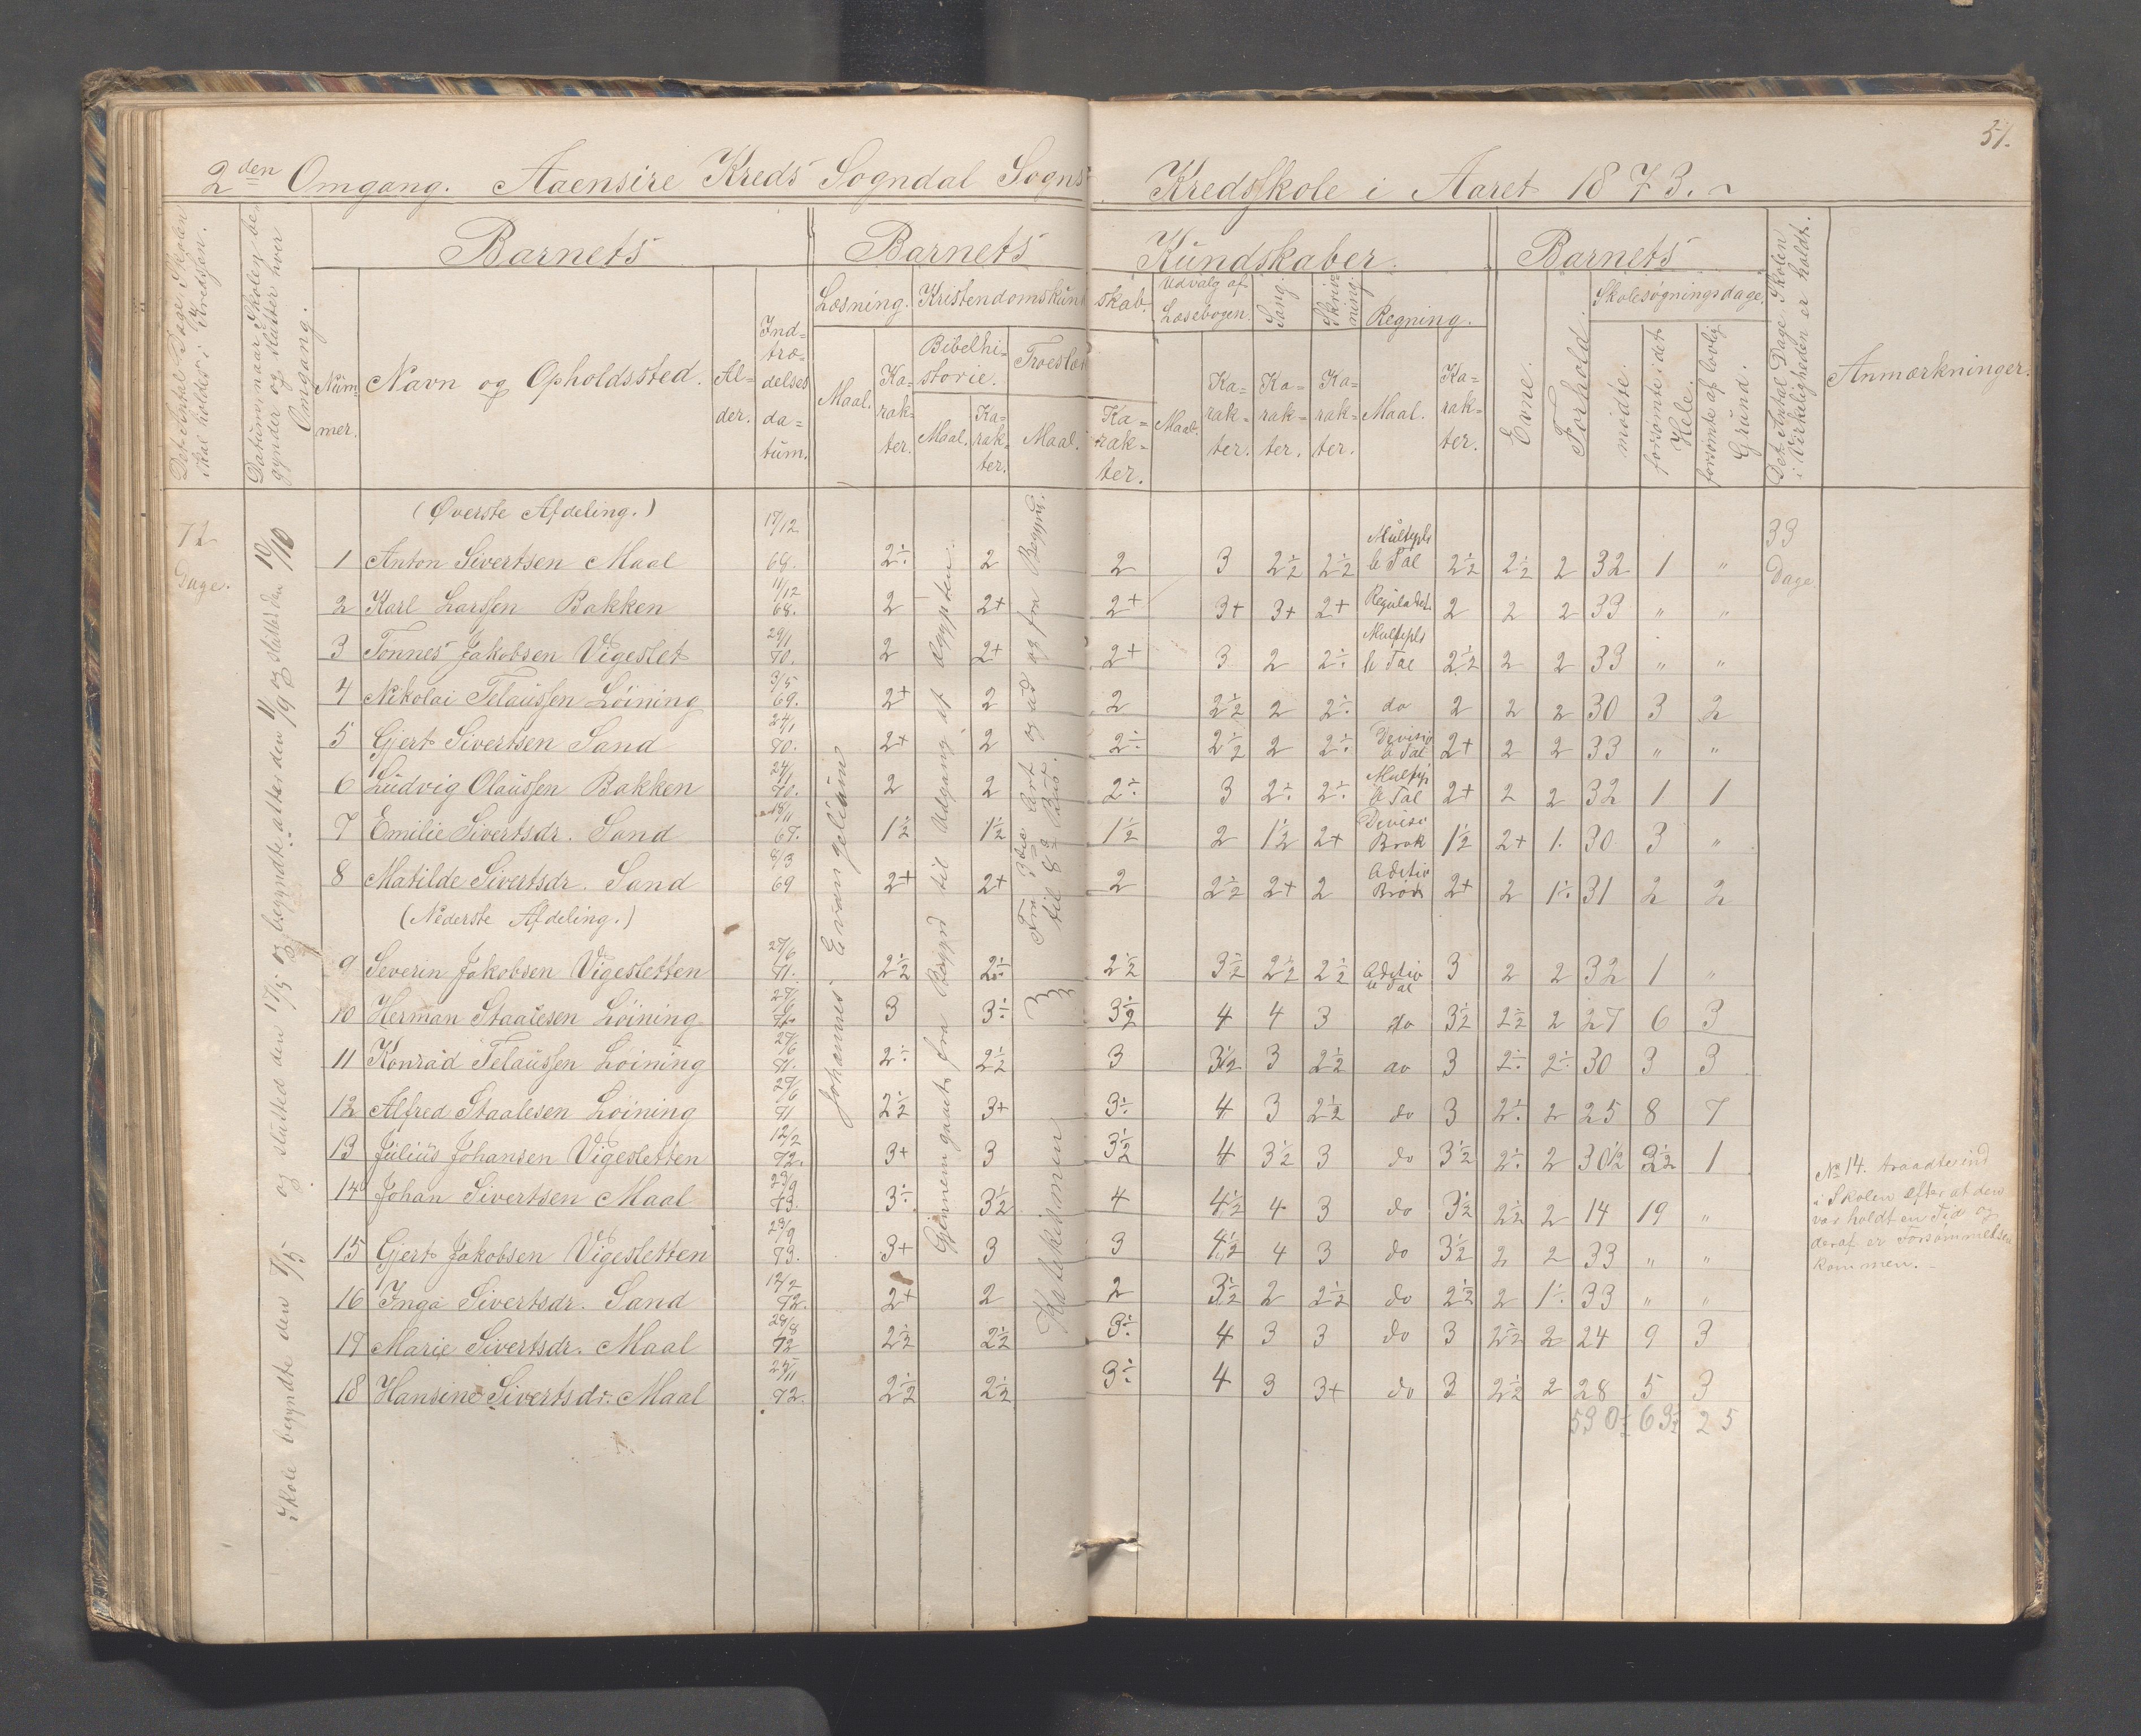 51.
2den Omgang. Aaensire Kreds Sogndal Sogns Kredsskole i Aaret 1873.
Det Antal Dage Skolen skal holdes i Kredsen.
Datum naar Skolen begynder og slutter hver Omgang.
Barnets Barnets Kundskaber. Barnets
Det Antal Dage Skolen i Virkeligheden er holdt.
Anmærkninger.
Læsning. Kristendomskundskab. Udvalg af Læsebogen. Sang Skrivning. Regning. Evne. Forhold. Skolesøgningsdage.
Nummer. Navn og Opholdssted. Alder. Indtrædelsesdatum. Maal. Karakter. Bibelhistorie. Maal. Karakter. Troeslær Maal. Karakter. Maal. Karakter. Karakter. Karakter. Maal. Karakter. mødte. forsømte i det Hele. forsømte af lovlig Grund.
72 Dage.
Skole begyndte den 7/5 og slutted den 17/5 og begyndte atter den 11/9 og sluttes den 10/10
Johannes Evangelium
Gjennemgaaet fra Begynd til Udgang af Ægypten.
Fra 3die Art og ud og fra Begynd. til 8de Bud.
Katekismen
33 Dage
(Øverste Afdeling.)
1 Anton Sivertsen Maal 17/12 69. 2÷ 2 2 3 2½ 2½ Multipls b Tal 2½ 2½ 2 32 1 "
2 Karl Larssen Bakken 11/12 68. 2 2+ 2+ 3+ 3+ 2+ Reguladet. 2 2 2 33 " "
3 Tønnes Jakobsen Vigeslet 29/1 70. 2 2+ 2+ 3 2 2÷ Multipls b Tal 2½ 2 2 33 " "
4 Nikolai Telaussen Løining 3/5 69. 2+ 2 2 2½ 2 2÷ do 2 2 2 30 3 2
5 Gjert Sivertsen Sand 24/1 70. 2+ 2 2÷ 2½ 2 2÷ Divisio b Tal 2+ 2 2 33 " "
6 Ludvig Olaussen Bakken 24/1 70. 2 2 2÷ 3 2÷ 2÷ Multip b Tal 2+ 2 2 32 1 1
7 Emilie Sivertsdr. Sand 18/11 67. 1½ 1½ 1½ 2 1½ 2+ Divisi Brøk 1½ 2+ 1. 30 3 "
8 Matilde Sivertsdr. Sand 8/3 69 2+ 2+ 2 2½ 2+ 2 Aditio Brøk 2+ 2 1÷ 31 2 2
(Nederste Afdeling.)
9 Severin Jakobsen Vigesletten 27/6 71. 2½ 2÷ 2½ 3½ 2½ 2½ Aditio b Tal 3 2 2 32 1 "
10 Herman Staalesen Løining 27/6 71. 3 3÷ 3½ 4 4 3 do 3½ 2½ 2 27 6 3
11 Konrad Telaussen Løining 27/6 71. 2÷ 2½ 3 3½ 3 2½ do 3 2÷ 2÷ 30 3 3
12 Alfred Staalesen Løining 27/6 71 2½ 3+ 3÷ 4 3 2½ do 3 2÷ 2 25 8 7
13 Julius Johansen Vigesletten 12/2 72. 3+ 3 3½ 4 3½ 3 do 3½ 2÷ 2 30½ 2½ 1
14 Johan Sivertsen Maal 23/9 73. 3÷ 3½ 4 4½ 4 3 do 3½ 2½ 2 14 19 "
15 Gjert Jakobsen Vigesletten 23/9 73. 3+ 3 3 4½ 4 3 do 3½ 2 2 33 " "
16 Inga Sivertsdr. Sand 12/2 72. 2+ 2 2 3½ 2 2½ do 2½ 2 1÷ 33 " "
17 Marie Sivertsdr. Maal 28/8 72 2½ 2½ 3÷ 4 3 3 do 3 2½ 2 24 9 3
18 Hansine Sivertsdr. Maal 25/11 72. 2½ 2½ 3÷ 4 3 3+ do 3 2½ 2 28 5 3
530½ 63½ 25
No 14. traadte ind
i Skolen efter at den
var holdt en Tid og
deraf er Forsømmelsen
kommen.